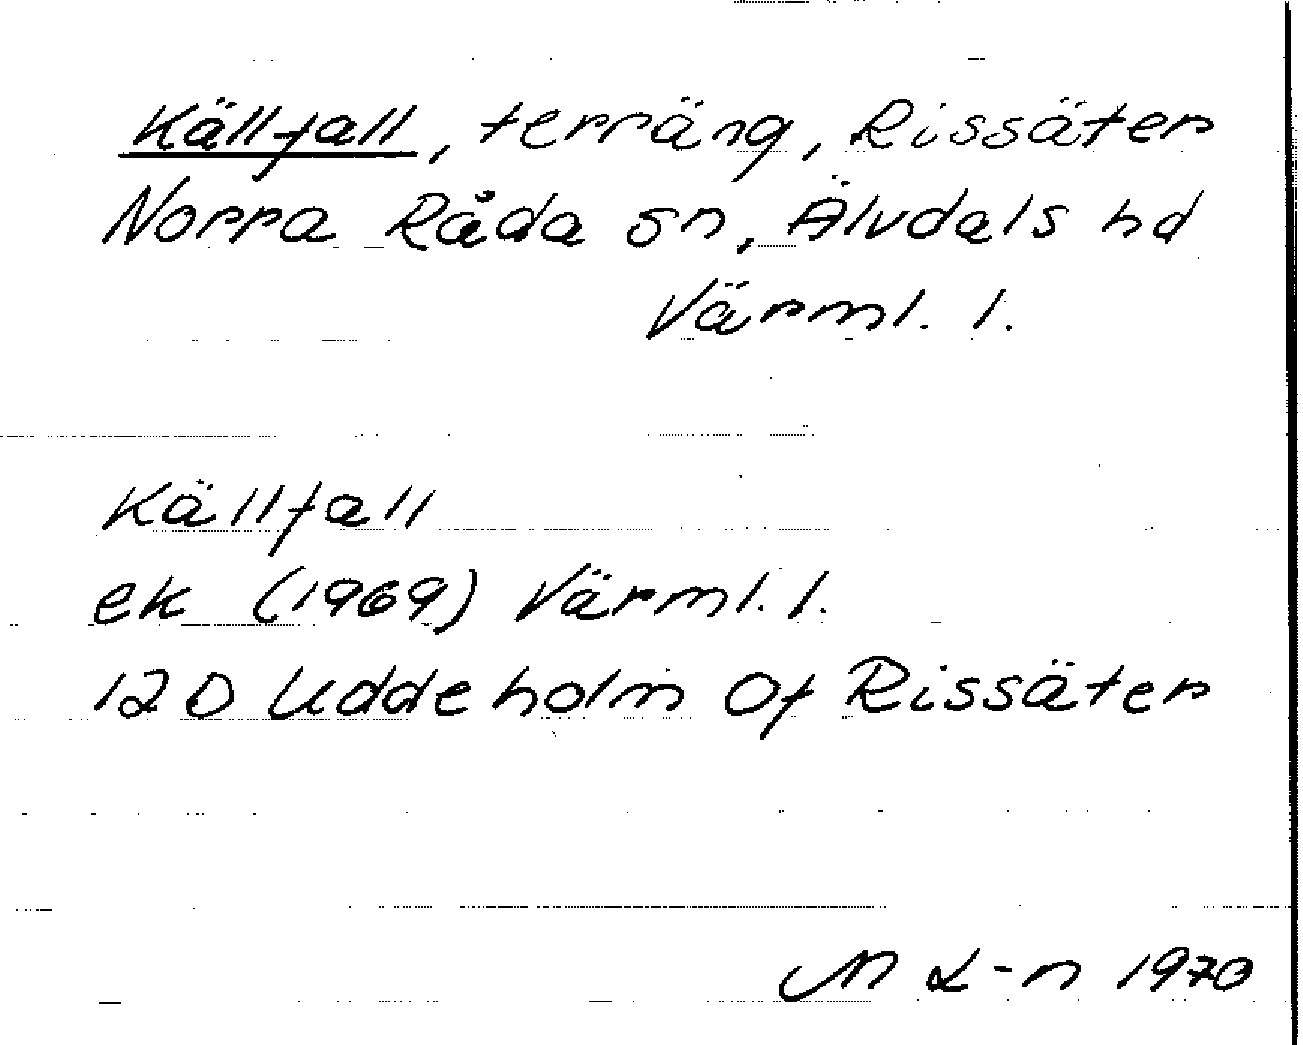 Källfall, terräng, Rissäter
Norra Råda sn, Älvdals hd
Värml. l.
Källfall
ek (1969) Värml. l.
12D Uddeholm 0f Rissäter
M L-n 1970